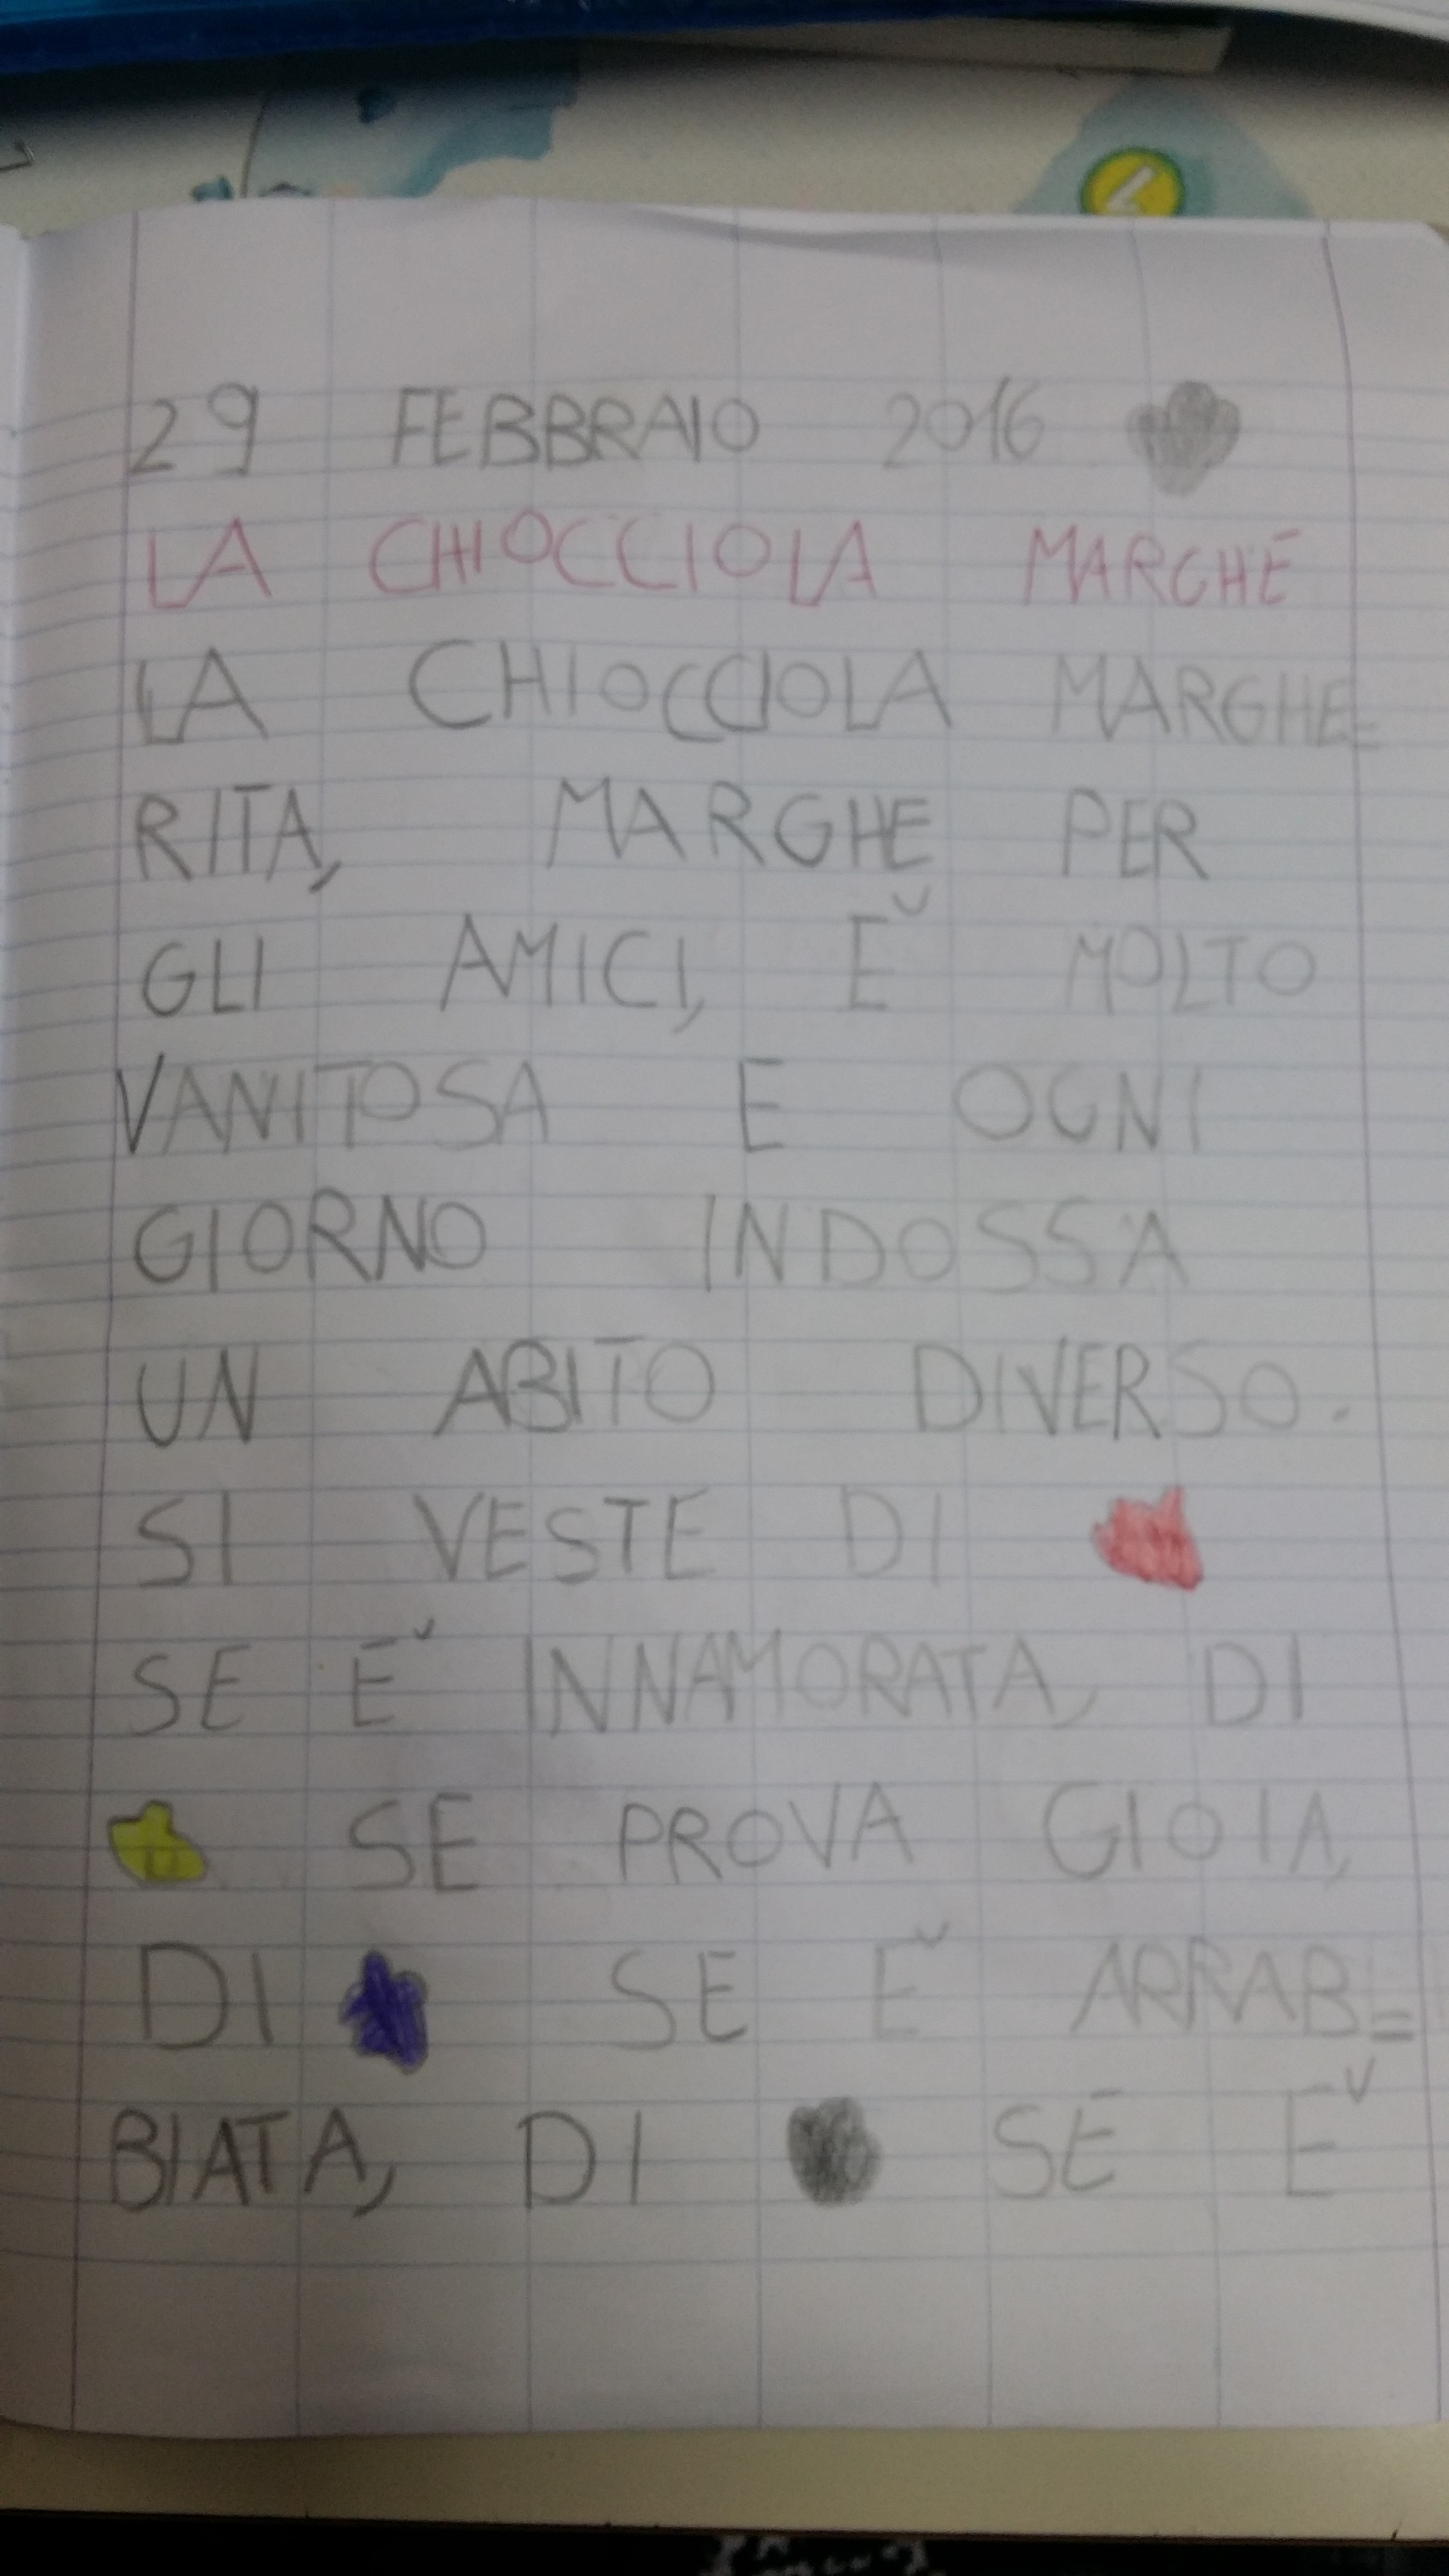 29 FEBBRAIO 2016
LA CHIOCCIOLA MARGHE
LA CHIOCCIOLA MARGHE=
RITA, MARGHE PER
GLI AMICI, Ĕ MOLTO
VANITOSA E OGNI
GIORNO INDOSSA
UN ABITO DIVERSO.
SI VESTE DI
SE Ĕ INNAMORATA, DI
SE PROVA GIOIA,
DI SE Ĕ ARRAB=
BIATA, DI SE Ĕ